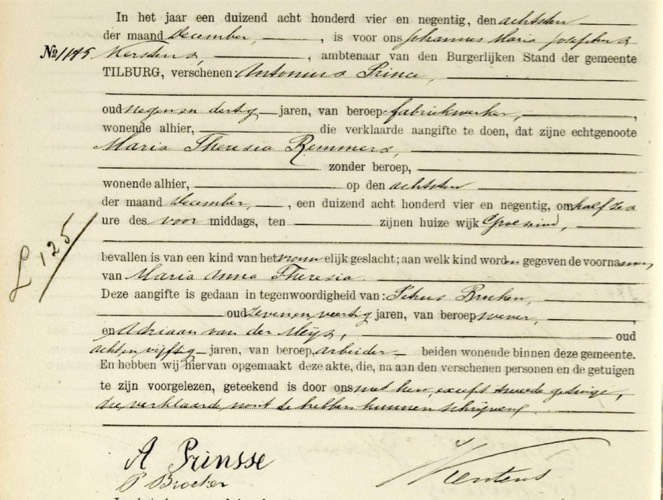 In het jaar een duizend acht honderd vier en negentig, den achtsten
der maand December, is voor ons Johannes Maria Josephus
No 1185 Kerstens, ambtenaar van den Burgerlijken Stand der gemeente
TILBURG, verschenen Antonius Prince,
oud negen en dertig jaren, van beroep fabriekwerker,
wonende alhier, die verklaarde aangifte te doen, dat zijne echtgenoote
Maria Theresia Remmers,
zonder beroep,
wonende alhier, op den achtsten
der maand December, een duizend acht honderd vier en negentig, om half zes
ure des voor middags, ten zijnen huize wijk
L 125
bevallen is van een kind van het vrouwelijk geslacht; aan welk kind worden gegeven de voornamen
van Maria Anna Theresia
Deze aangifte is gedaan in tegenwoordigheid van: Petrus Broeken,
oud zeven en veertig jaren, van beroep wever,
en Adriaan van der Meijs, oud
acht en vijftig jaren, van beroep, arbeider beiden wonende binnen deze gemeente.
En hebben wij hiervan opgemaakt deze akte, die, na aan den verschenen personen en de getuigen
te zijn voorgelezen, geteekend is door ons met hen, except tweede getuige,
die verklaarde, nooit te hebben kunnen schrijven
A Prinsse
P Brocken
Kerstens